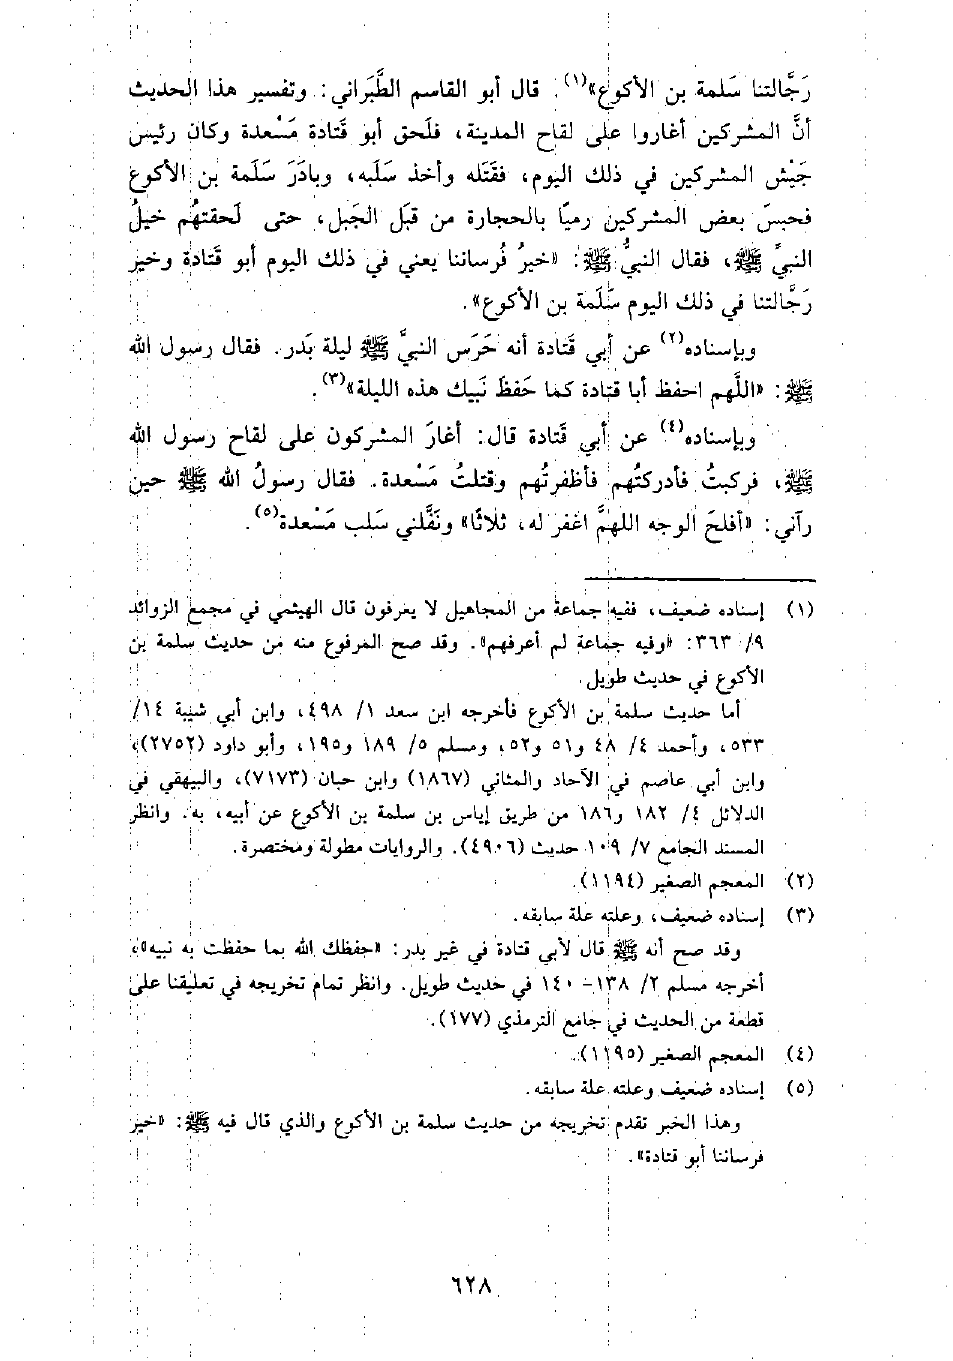 رَجَّالتنا سَلمة بن الأكوع»(١). قال أبو القاسم الطَّبَراني: وتفسير هذا الحديث
أنَّ المشركين أغاروا على لقاح المدينة، فلَحق أبو قَتادة مَسْعدة وكان رئيس
جَيْش المشركين في ذلك اليوم، فقَتَله وأخذ سَلَبه، وبادَرَ سَلَمة بن الأكوع
فحبسَ بعض المشركين رميًا بالحجارة من قبَل الجَبل، حتى لَحقتهُم خيلُ
النبيِّ ﷺ، فقال النبيُّ ﷺ: «خيرُ فُرساننا يعني في ذلك اليوم أبو قَتادة وخير
رَجَّالتنا في ذلك اليوم سَلَمة بن الأكوع».
وبإسناده(٢) عن أبي قَتادة أنه حَرَس النبيَّ ﷺ ليلة بَدر. فقال رسول الله
ﷺ: «اللَّهم احفظ أبا قتادة كما حَفظ نَبيك هذه الليلة»(٣).
وبإسناده(٤) عن أبي قَتادة قال: أغارَ المشركون على لقاح رسول الله
ﷺ، فركبتُ فأدركتُهم فأظفرتُهم وقتلتُ مَسْعدة. فقال رسولُ الله ﷺ حين
رآني: «أفلحَ الوجه اللهمَّ اغفر له، ثلاثًا» ونَفَّلني سَلب مَسْعدة(٥).
(١) إسناده ضعيف، ففيه جماعة من المجاهيل لا يعرفون قال الهيثمي في مجمع الزوائد
٩/ ٣٦٣: «وفيه جماعة لم أعرفهم». وقد صح المرفوع منه من حديث سلمة بن
الأكوع في حديث طويل.
أما حديث سلمة بن الأكوع فأخرجه ابن سعد ١/ ٤٩٨، وابن أبي شيبة ١٤/
٥٣٣، وأحمد ٤/ ٤٨ و٥١ و٥٢، ومسلم ٥/ ١٨٩ و١٩٥، وأبو داود (٢٧٥٢)،
وابن أبي عاصم في الآحاد والمثاني (١٨٦٧) وابن حبان (٧١٧٣)، والبيهقي في
الدلائل ٤/ ١٨٢ و١٨٦ من طريق إياس بن سلمة بن الأكوع عن أبيه، به. وانظر
المسند الجامع ٧/ ١٠٩ حديث (٤٩٠٦). والروايات مطولة ومختصرة.
(٢) المعجم الصغير (١١٩٤).
(٣) إسناده ضعيف، وعلته علة سابقه.
وقد صح أنه ﷺ قال لأبي قتادة في غير بدر: «حفظك الله بما حفظت به نبيه»،
أخرجه مسلم ٢/ ١٣٨- ١٤٠ في حديث طويل. وانظر تمام تخريجه في تعليقنا على
قطعة من الحديث في جامع الترمذي (١٧٧).
(٤) المعجم الصغير (١١٩٥).
(٥) إسناده ضعيف وعلته علة سابقه.
وهذا الخبر تقدم تخريجه من حديث سلمة بن الأكوع والذي قال فيه ﷺ: «خير
فرساننا أبو قتادة».
٦٢٨